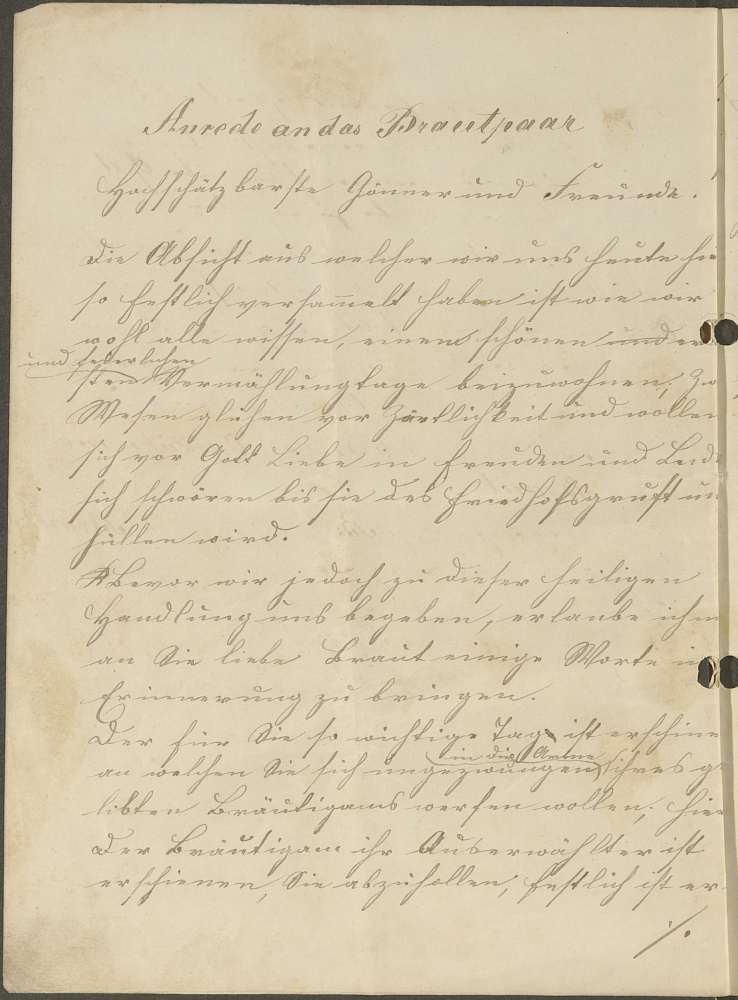 Anrede an das Brautpaar
Hochschätzbarste Gönner und Freunde.
Die Absicht aus welcher wir uns heute hie
so festlich versam̄elt haben ist wie wir
wohl alle wissen, einem schönen und er
und feierlichen
sten Vermählungtage beizuwohnen, Zw
Wesen glühen vor Zärtlichkeit und wollen
sich vor Gott Liebe in Freuden und Leid
sich schwören bis sie des Friedhofsgruft um
hüllen wird.
Bevor wir jedoch zu dieser heiligen
Handlung uns begeben, erlaube ich m
an Sie liebe Braut einige Worte in
Erinnerung zu bringen.
Der für Sie so wichtige Tag ist erschine
in die Arme
an welchen Sie sich ungezwungen ihres g
libten Bräutigams werfen wollen; hier
Der Bräutigam ihr Auserwählter ist
erschienen, Sie abzuhollen, festlich ist er
./.